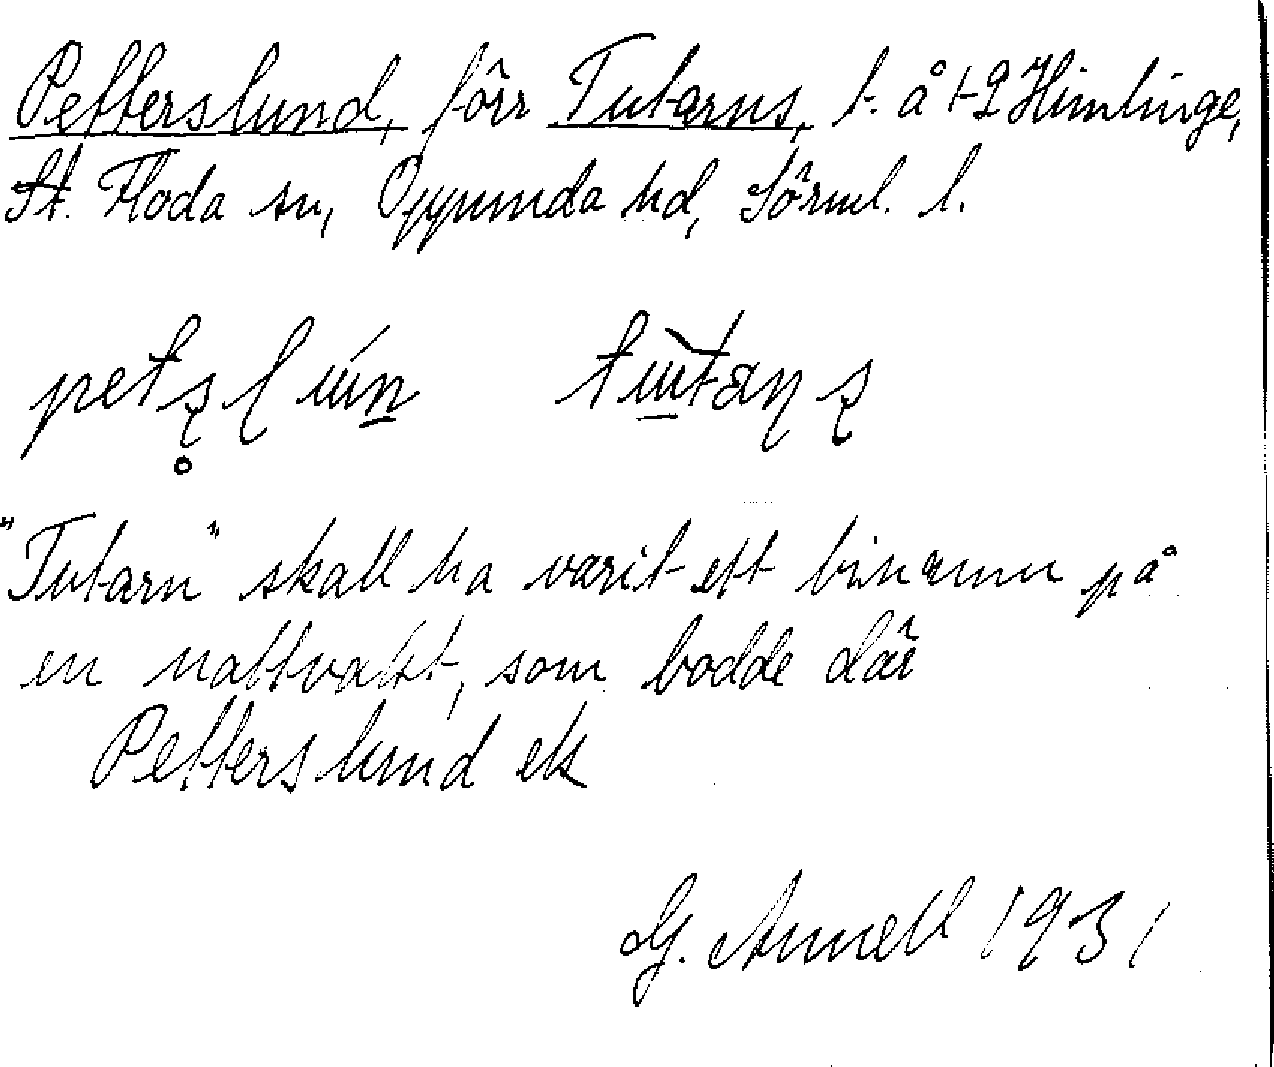 Petterslund, förr Tutarns, t. å t2 Himlinge,
St. Floda sn, Oppunda hd, Sörml. l.
"Tutarn" skall ha varit ett binamn på
en nattvakt, som bodde där
Petterslund ek
G. Annell 1931